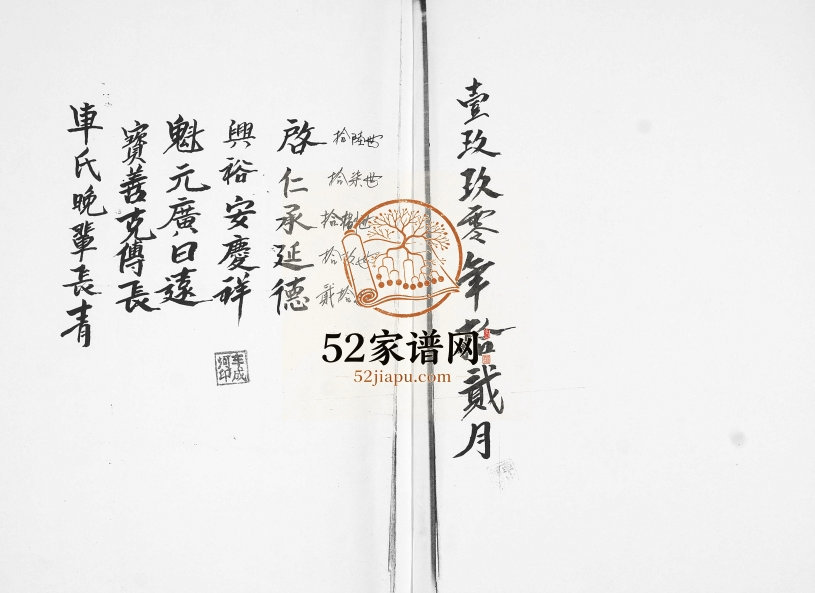 壹玖玖零年拾貳月
拾陸世
拾柒世
拾捌世
拾玖世
貳拾
啓仁承延德
興裕安慶祥
魁元廣日遠
寶善克傳長
車氏晚輩長青
52家谱网
52jiapu.com